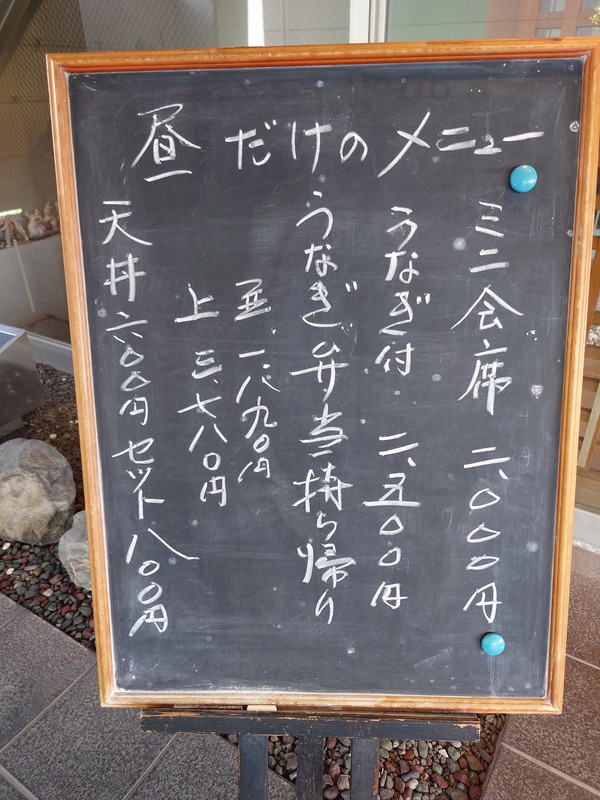 昼だけのメニュー
ミニ会席 二、〇〇〇円
うなぎ付 二、五〇〇円
うなぎ弁当持ち帰り
並 一、八九〇円
上 三、七八〇円
天丼 六〇〇円 セット 八〇〇円